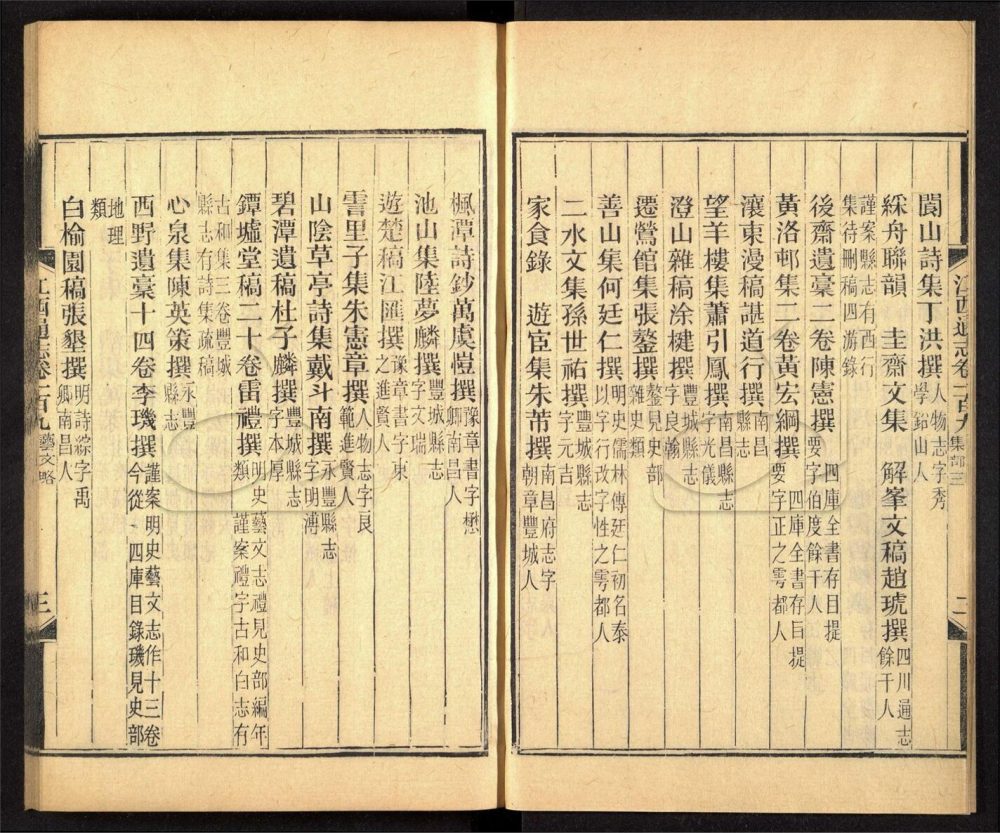 江西通志卷一百九 集部三 二
閬山詩集丁洪撰 人物志字秀學鉛山人
綵舟聯韻 圭齋文集 解峯文稿趙琥撰 四川通志餘干人
謹案縣志有西行集待刪稿四游錄
後齋遺稾二卷陳憲撰 四庫全書存目提要字伯度餘干人
黃洛邨集二卷黃宏綱撰 四庫全書存目提要字正之雩都人
瀼東漫稿諶道行撰 南昌
望羊樓集蕭引鳳撰 南昌縣志字光儀
澄山雜稿涂楗撰 豐城縣志字良翰
遷鶯館集張鏊撰 鏊見史部雜史類
善山集何廷仁撰 明史儒林傳廷仁初名泰以字行改字性之雩都人
二水文集孫世祐撰 豐城縣志字元吉
家食錄 遊宦集朱芾撰 南昌府志字朝章豐城人
楓潭詩鈔萬虞愷撰 豫章書字懋卿南昌人
池山集陸夢麟撰 豐城縣志字文瑞
遊楚稿江匯撰 豫章書字東之進賢人
霅里子集朱憲章撰 人物志字良範進賢人
山陰草亭詩集戴斗南撰 永豐縣志字明溥
碧潭遺稿杜子麟撰 豐城縣志字本厚
鐔墟堂稿二十卷雷禮撰 明史藝文志禮見史部編年類 謹案禮字古和白志有
古和集三卷豐城縣志有詩集疏稿
心泉集陳英策撰 永豐縣志
西野遺稾十四卷李璣撰 謹案明史藝文志作十三卷今從 四庫目錄璣見史部
地理類
白榆園稿張墾撰 明詩綜字禹卿南昌人
江西通志卷一百九 藝文略 三